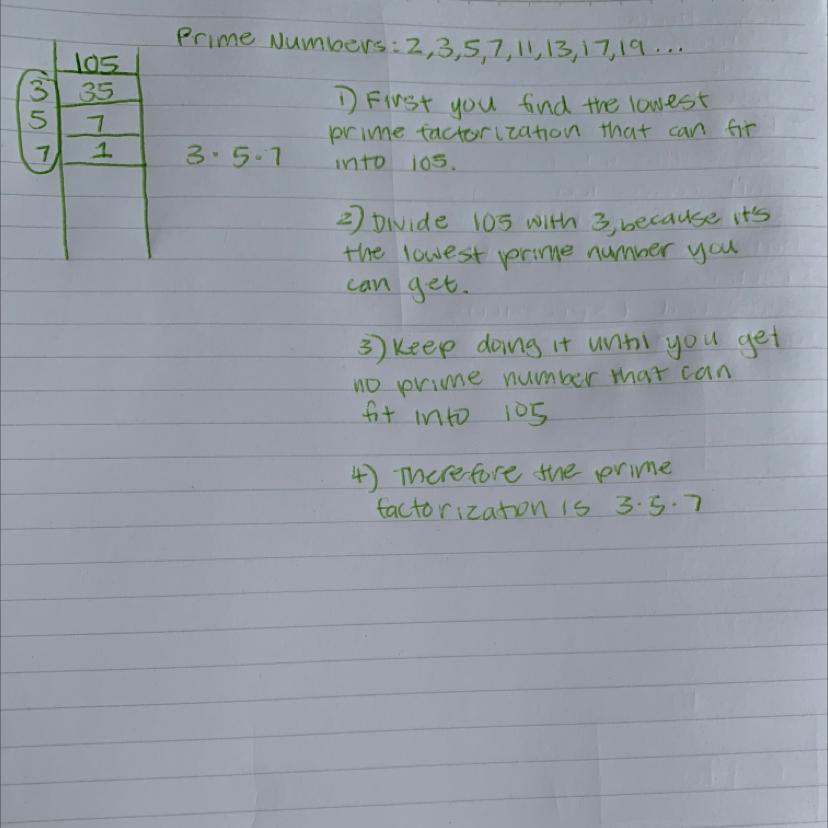 Prime Numbers: 2,3,5,7,11,13,17,19...
105
3 35
5 7
7 1
3·5·7
1) First you find the lowest
prime factorization that can fit
into 105.
2) Divide 105 with 3, because it's
the lowest prime number you
can get.
3) Keep doing it until you get
no prime number that can
fit into 105
4) Therefore the prime
factorization is 3·5·7